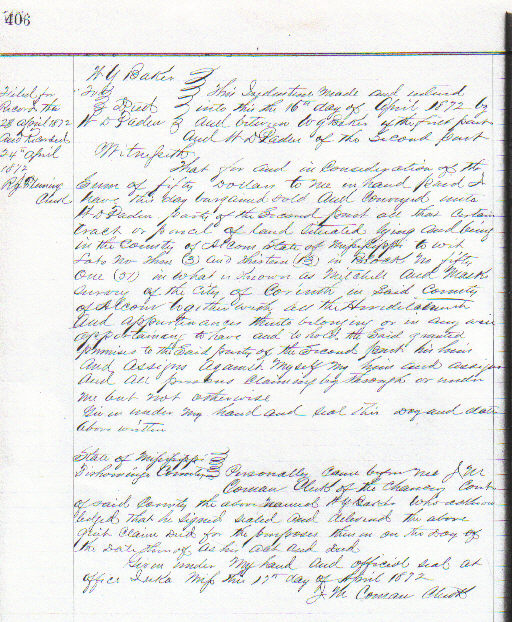 406
W G Baker
To
Deed
W D Paden
Filed for
Record the
28 April 1872
and Recorded
24th April
1872
Clerk
This Indenture Made and entered
into this the 16th day of April 1872 by
and between W G Baker of the first part
and W D Paden of the Second part
Witnesseth
That for and in Consideration of the
Sum of fifty Dollars to me in hand paid I
have this day bargained Sold and Conveyed unto
W D Paden party of the Second part all that certain
tract or parcel of land situated lying and being
in the County of Alcorn State of Mississippi to wit
Lots No three (3) and thirteen (13) in Block No fifty
One (51) in what is known as Mitchell and Mask
Survey of the City of Corinth in Said County
of Alcorn together with all the Hereditaments
and appurtenances thereto belonging or in any wise
appertaining to have and to hold the Said granted
premises to the Said party of the Second part his heirs
and Assigns Against Myself My heirs and assigns
And All persons Claiming by through or under
me but not otherwise
Given under My hand and seal this day and date
above written
State of Mississippi
Tishomingo County
Personally Came before me J M
Coman Clerk of the Chancery Court
of said County the above named W G Baker who acknow
ledged that he signed sealed and delivered the above
quit Claim deed for the purposes therein on the day of
the date thereof as his act and deed
Given under My hand and official seal at
office Iuka Miss this 17th day of April 1872
J M Coman Clerk